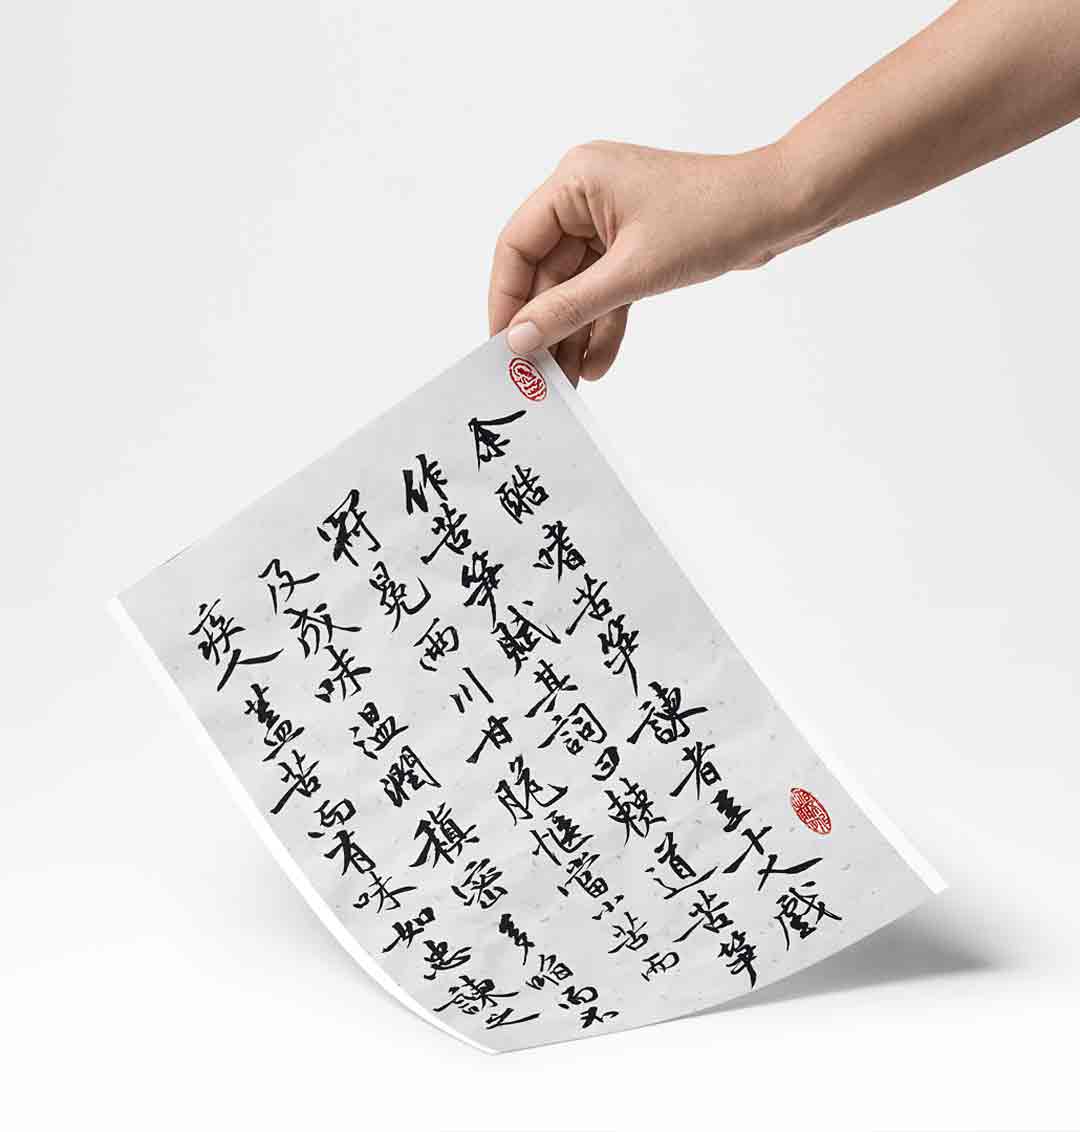 余酷嗜苦笋諫者至十人戲
作苦笋賦其詞曰僰道苦笋
冠冕兩川甘脆愜當小苦而
反成味温潤稹密多啗而不
疾人蓋苦而有味如忠諫之